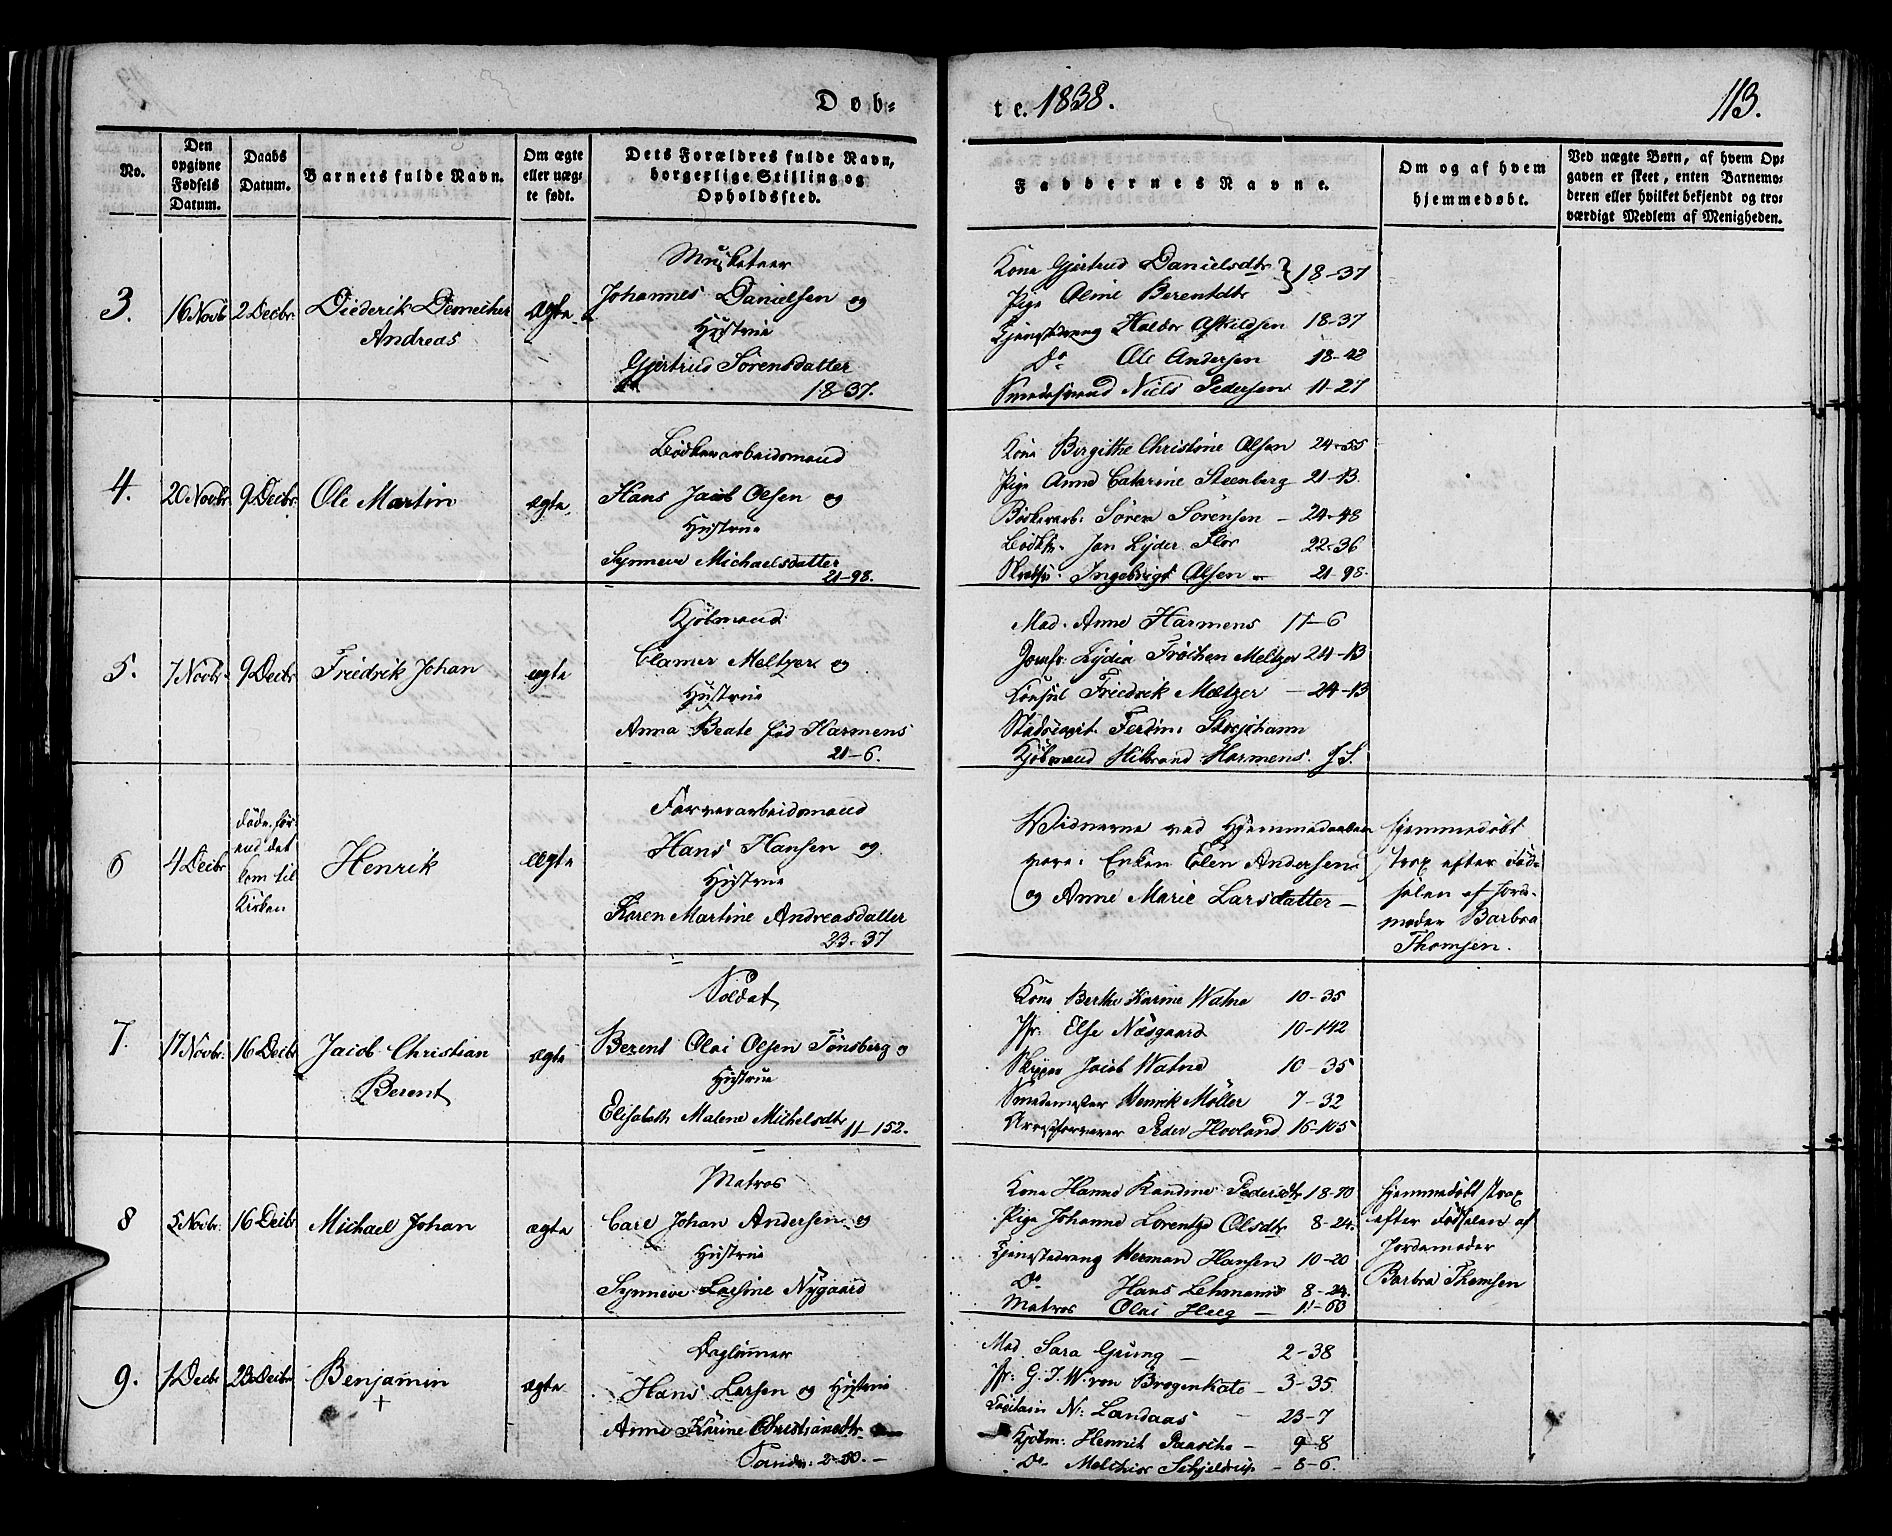 Døb-
te. 1838.
113.
No.
Den
opgivne
Fødsels
Datum.
Daabs
Datum.
Barnets fulde Navn.
Om ægte
eller uæg-
te født.
Dets Forældres fulde Navn,
borgerlige Stilling og
Opholdssted.
Faddernes Navne.
Om og af hvem
hjemmedøbt.
Ved uægte Børn, af hvem Op-
gaven er skeet, enten Barnemo-
deren eller hvilket bekjendt og tro-
værdigt Medlem af Menigheden.
3.
16 Novb
2 Decbr.
Diederik
Andreas
Ægte
Musketeer
Johannes Danielsen og
Hustrue
Gjertrud Sørensdatter
18-37.
Kone Gjertrud Danielsdtr } 18-37
Pige Oline Berentdtr
Tjenestedreng Halvor Askildsen 18-37
Do Ole Andersen 18-42
Smedesvend Niels Pedersen 11-27
4.
20 Novbr.
9 Decbr.
Ole Martin
ægte
Bødkerarbeidsmand
Hans Jacob Olsen og
Hustrue
Synneve Michaelsdatter
21-98.
Kone Birgithe Christine Olsen 24-55
Pige Anne Catarine Steenberg 21-13.
Bødkerarb: Sören Sörensen - 24-48
Jan Lyder Flor 22-36
Ingebrigt Olsen - 21-98.
5.
7 Novbr.
9 Decbr.
Friedrik Johan
ægte
Kjøbmand
Clamer Meltzer og
Hustrue
Anna Beate fød Harmens
21-6.
Mad. Anne Harmens 17-6
Jomfr: Lydia Fröchen Meltzer 24-13
Konsul Friedrik Meltzer - 24-13
Ferdin: Storjohann
Kjøbmand Hilbrand Harmens.
6
4 Decbr
døde før-
end det
kom til
Kirken
Henrik
Ægte
Farverarbeidsmand
Hans Hansen og
Hustrue
Karen Martine Andreasdatter
23-37
Vidnerne ved Hjemmedaaben
vare: Enken Elen Andersen
og Anne Marie Larsdatter -
Hjemmedøbt
strax efter Fød-
selen af Jord-
moder Barbra
Thomsen.
7.
17 Novbr.
16 Decbr
Jacob Christian
Berent
ægte
Soldat
Berent Olai Olsen Tönsberg og
Hustrue
Elisabeth Malene Michelsdtr
11-152.
Kone Berthe Karine Watne 10-35
Jfr: Else Næsgaard 10-142
Skipper Jacob Watne 10-35
Smedemester Henrik Möller 7-32
Arrestforvarer Peder Hovland 16-105
8
5 Novbr.
16 Decbr
Michael Johan
ægte
Matros
Carl Johan Andersen og
Hustrue
Synneve Nygaard
Kone Hanne Randine Pedersdtr 18-70
Pige Johanne Lorentze Olsdtr 8-24.
Tjenestedreng Herman Hansen 10-20
Do Hans Lehmann 8-24.
Matros Olai Heeg - 11-60
Hjemmedøbt strax
efter Fødselen af
Jordemoder
Barbra Thomsen
9.
1 Decbr
23 Decbr
Benjamin
+
ægte
Daglønner
Hans Larsen og Hustrue
Anne Karine Christiansdtr.
2-50. -
Mad. Sara Grung - 2-38
Jfr: G. I. W. von Bregenkate - 3-35.
N: Landaas - 23-7
Kjøbm: Henrich Paasche - 9-8
Do Melchior Schjeldrup - 8-6.